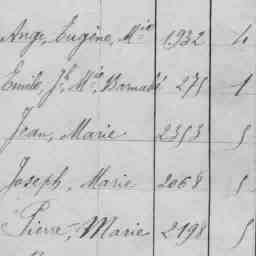 Ange, Eugène, Mie 1932 4
Emile, Jh, Mie, Barnabé 275 1
Jean, Marie 2353 5
Joseph, Marie 2068 5
Pierre, Marie 2198 5